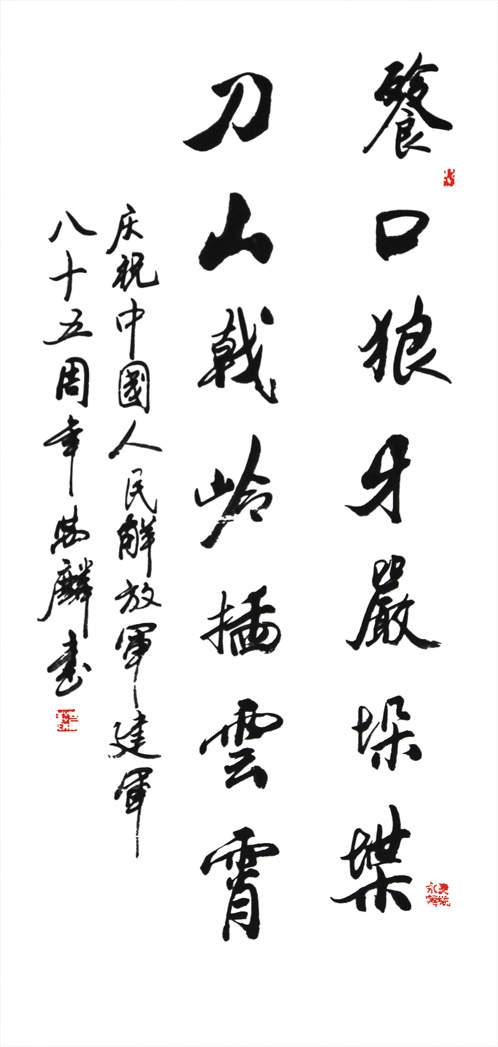 餮口狼牙嚴垛堞
刀山戟岭插雲霄
庆祝中國人民解放軍建軍
八十五周年麟书